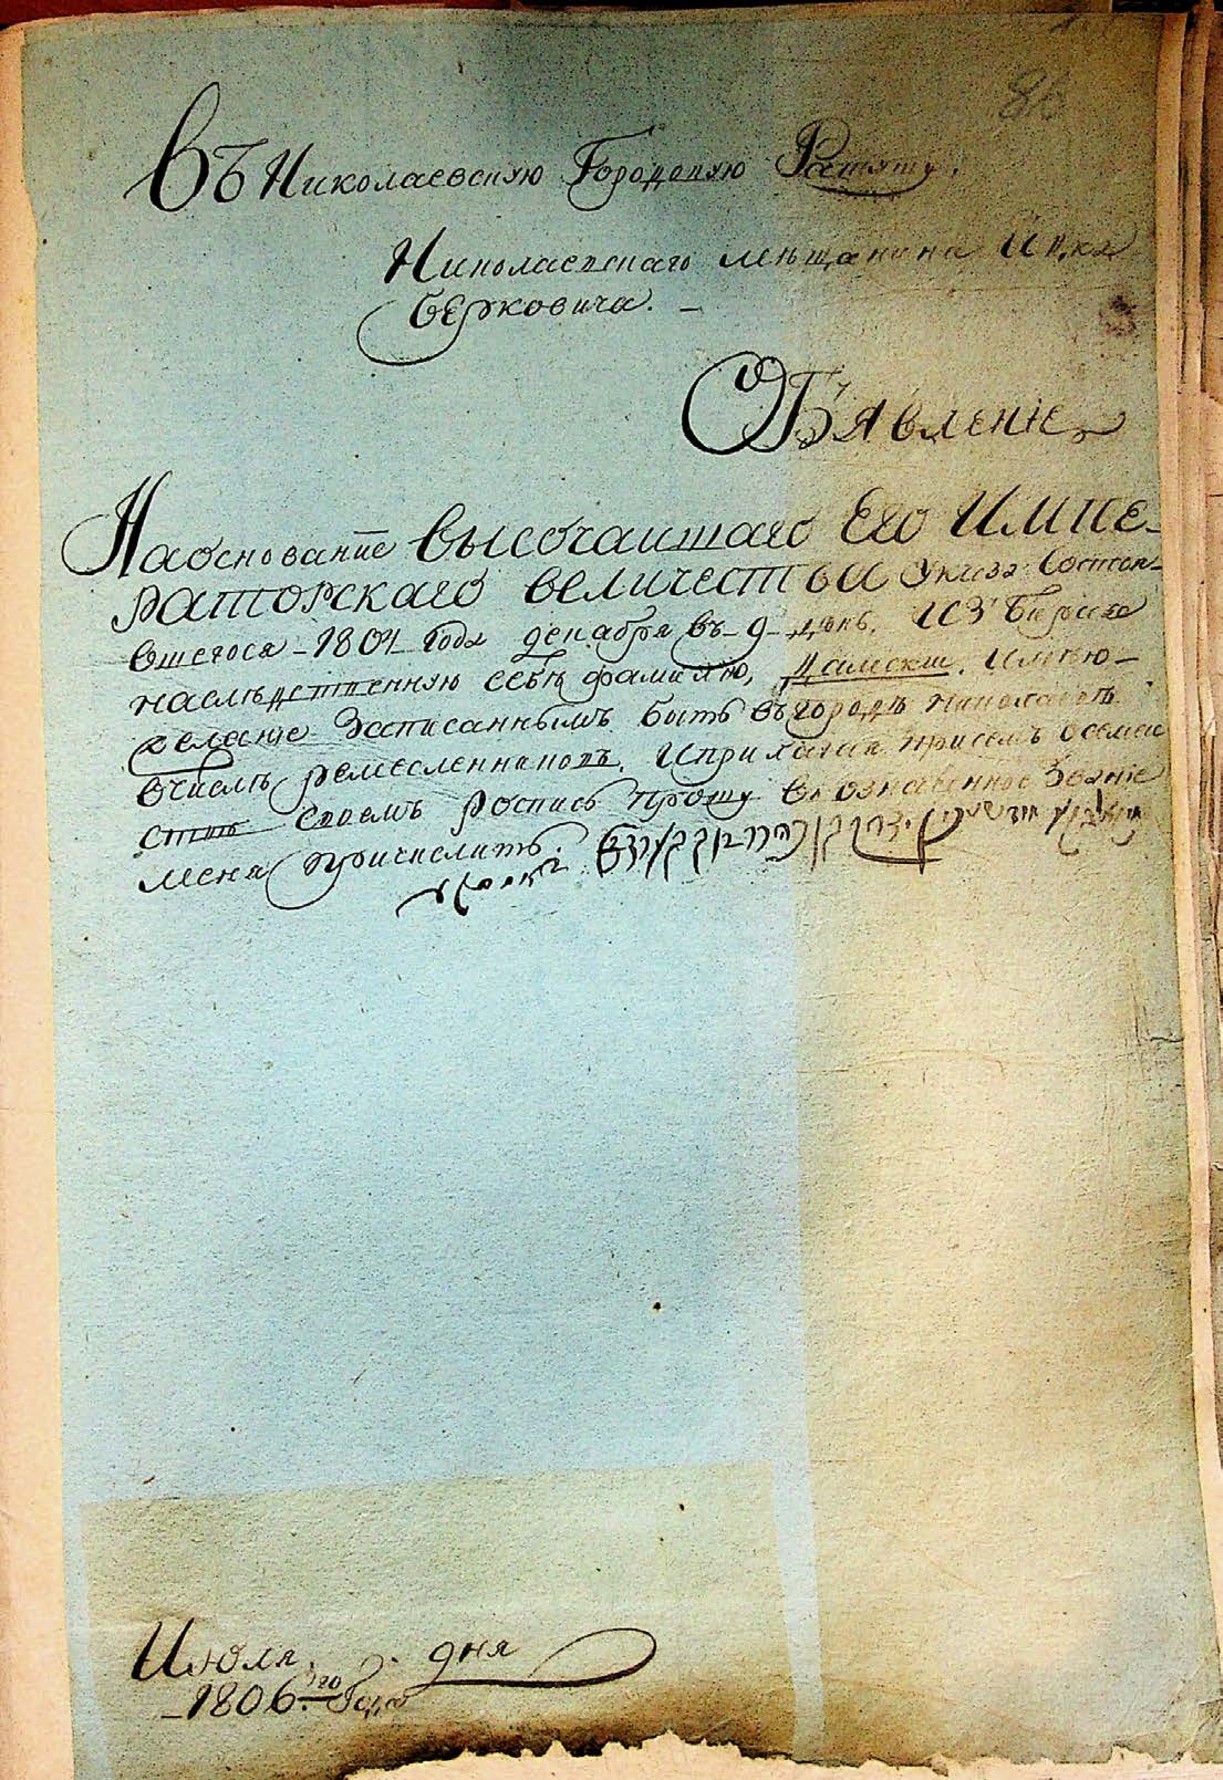 86
Въ Николаевскую Городскую Ратушу.
Николаевскаго мещанина Ицка
Берковича. –
ОбЪявленіе
На основаніе Высочаишаго Его Импе-
раторскаго величества Указа Состоя-
вшегося – 1804 года декабря въ – 9 – день. ИзЪ бирая
наследственную себѣ фамилію, Дамски. Имѣю –
желаніе Записаннымъ быть въ городѣ Николаевѣ
вчислѣ ремесленниковъ. Иприлагая присемъ осемей
ствѣ своемъ роспись прошу въ означенное Званіе
меня причислить.
Июля. дня
– 1806.го Года